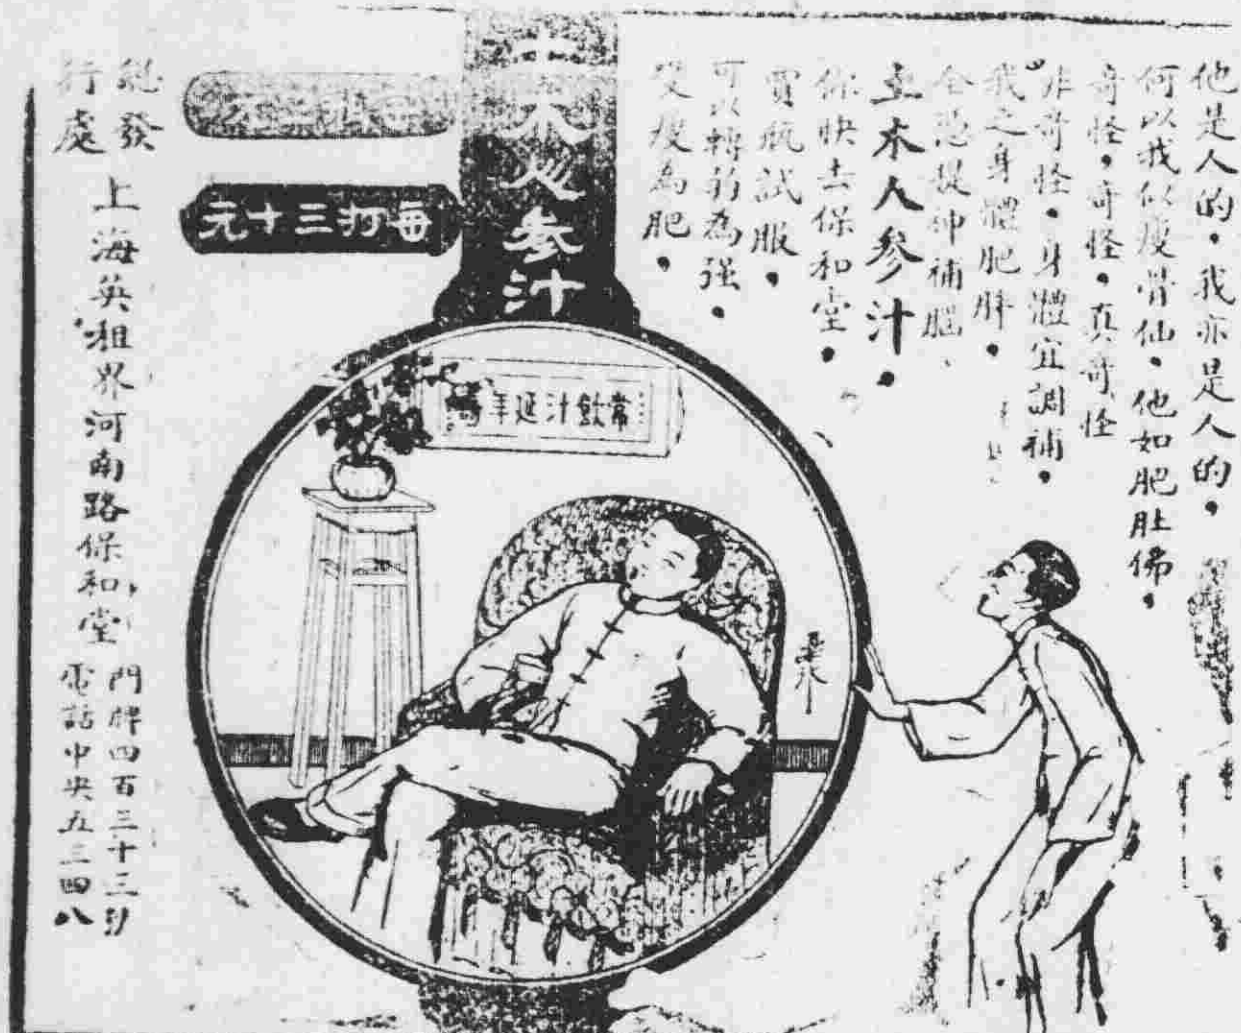 他是人的，我亦是人的，
何以我似瘦骨仙、他如肥肚佛，
奇怪，奇怪，真奇怪
非奇怪，身體宜調補，
我之身體肥胖，
全憑提神補腦、
土木人參汁，
你快去保和堂，
買瓶試服，
可以轉弱為强，
變瘦為肥，
土木人參汁
每瓶三元
每打三十元
常飲汁延年壽
總發行處
上海英租界河南路保和堂
門牌四百三十三號
電話中央五三四八